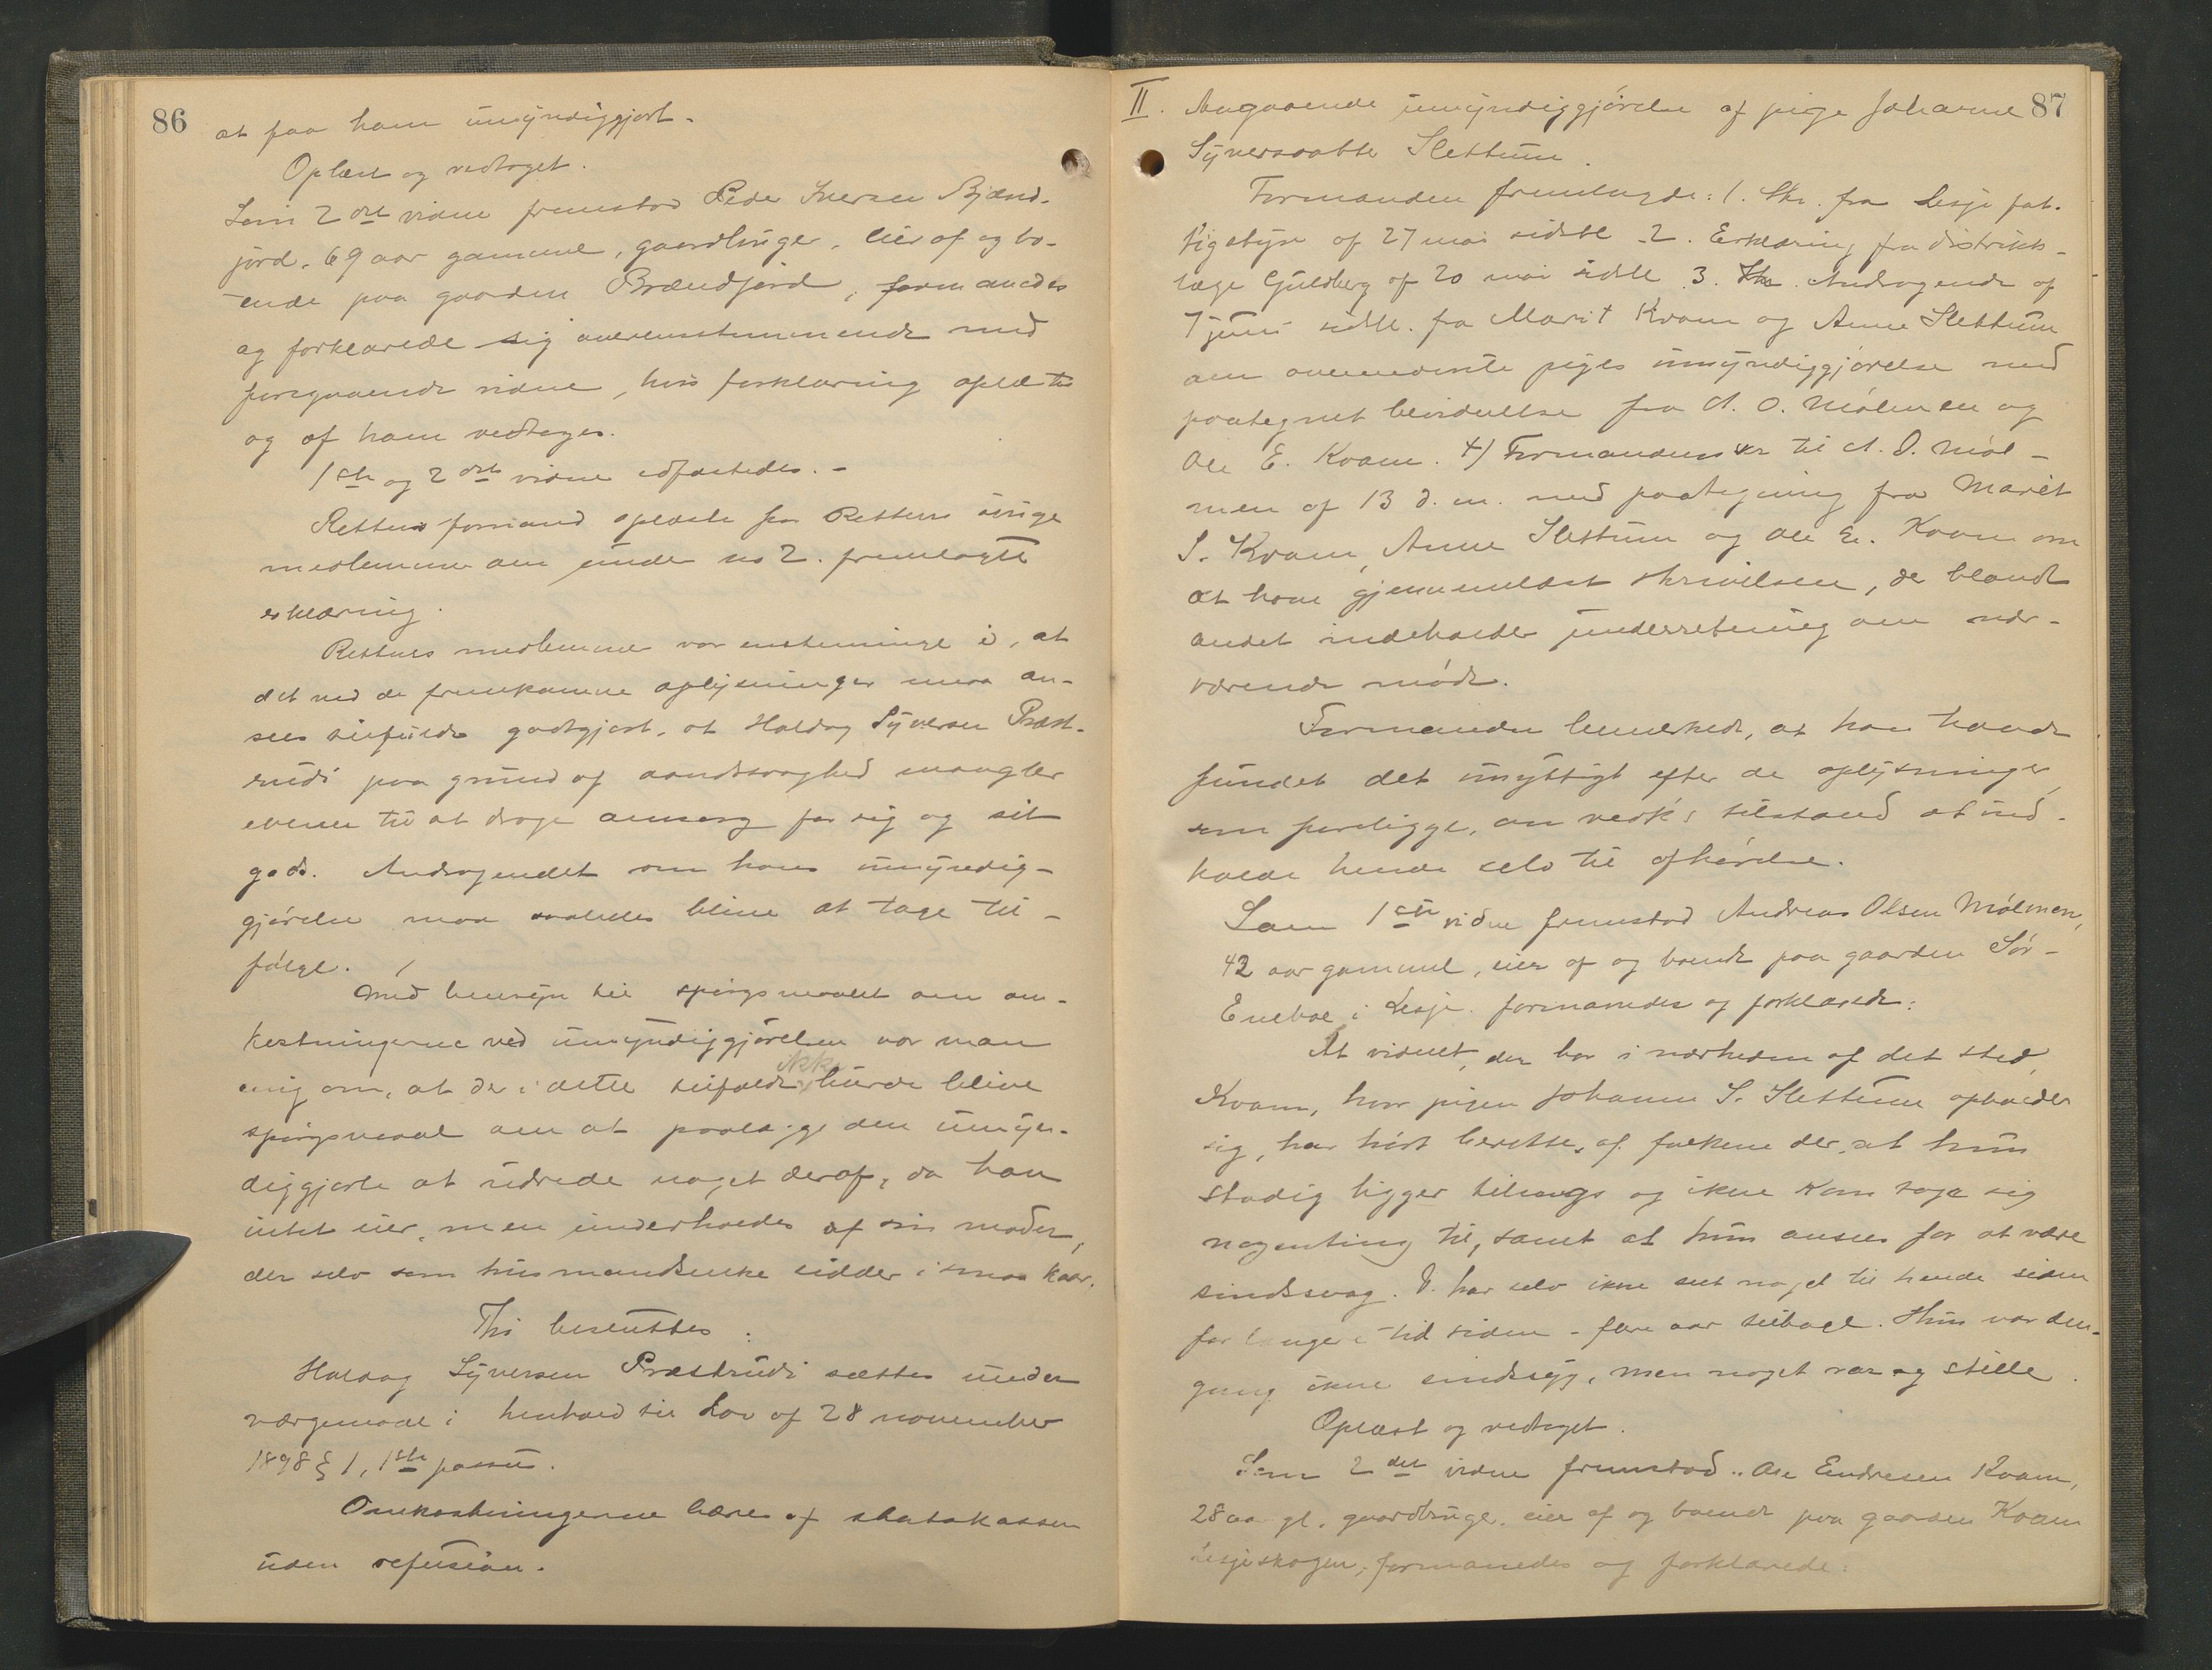 86
at faa ham umyndiggjort.
Oplæst og vedtaget.
Som 2det vidne fremstod Peder Iversen Bjænd-
jord, 69 aar gammel, gaardbruger, eier af og bo-
ende paa gaarden Brændjord, formanedes
og forklarede sig overensstemmende med
foregaaende vidne, hvis forklaring oplæstes
og af ham vedtages.
1ste og 2det vidne edfæstedes. -
Rettens formand oplæste for Rettens øvrige
medlemmer den under no 2. fremlagte
erklæring.
Rettens medlemmer var enstemmige i, at
det ved de fremkomne oplysninger maa an-
sees tilfulde godtgjort, at Haldog Syversen Præst-
rudi paa grund af aandssvaghed mangler
evnen til at drage omsorg for sig og sit
gods. Andragendet om hans umyndig-
gjørelse maa saaledes blive at tage til-
følge.
Med hensyn til spørgsmaalet om om-
kostningerne ved umyndiggjørelsen var man
enig om, at der i dette tilfælde ikke burde blive
spørgsmaal om at paalægge den umyn-
diggjorte at udrede noget deraf, da han
intet eier, men underholdes af sin moder,
der selv som husmandsenke sidder i smaa kaar.
Thi besluttes:
Haldog Syversen Præstrudi sættes under
værgemaal i henhold til Lov af 28 november
1898 § 1, 1ste passus.
Omkostningerne bæres af statskassen
uden refusion.
87
II. Angaaende umyndiggjørelse af pige Johanne
Syversdatter Slettum.
Formanden fremlagde: 1. Skr. fra Lesje fat-
tigstyre af 27 mai sidstl. 2. Erklæring fra distrikts-
læge Guldberg af 20 mai sidstl. 3. Skr. Andragende af
7 juni sidstl. fra Marit Kvam og Anne Slettum
om ovennævnte piges umyndiggjørelse med
paategnet bevidnelse fra A. O. Mølmen og
Ole E. Kvam. 4) Formandens skr til A. O. Møl-
men af 13 d. m. med paategning fra Marit
S. Kvam, Anne Slettum og Ole E. Kvam om
at have gjennemlæst skrivelsen, der blandt
andet indeholder underretning om nær-
værende møde.
Formanden bemerkede, at han havde
fundet det unyttigt efter de oplysninger,
som foreligge, om vedk's tilstand at ind-
kalde hende selv til afhørelse.
Som 1ste vidne fremstod Andreas Olsen Mølmen,
42 aar gammel, eier af og boende paa gaarden Sør-
Eneboe i Lesje. formanedes og forklarede:
At vidnet, der bor i nærheden af det sted,
Kvam, hvor pigen Johanne S. Slettum opholder
sig, har hørt berettes af folkene der, at hun
stadig ligger tilsengs og ikke kan tage sig
nogenting til, samt at hun ansees for at være
sindssvag. V. har selv ikke seet noget til hende siden
for længere tid siden - flere aar tilbage. Hun var den-
gang ikke sindssyg, men noget rar og stille.
Oplæst og vedtaget.
Som 2det vidne fremstod Ole Endresen Kvam,
28 aar gl. gaardbruger, eier af og boende paa gaarden Kvam
Lesjeskogen, formanedes og forklarede: